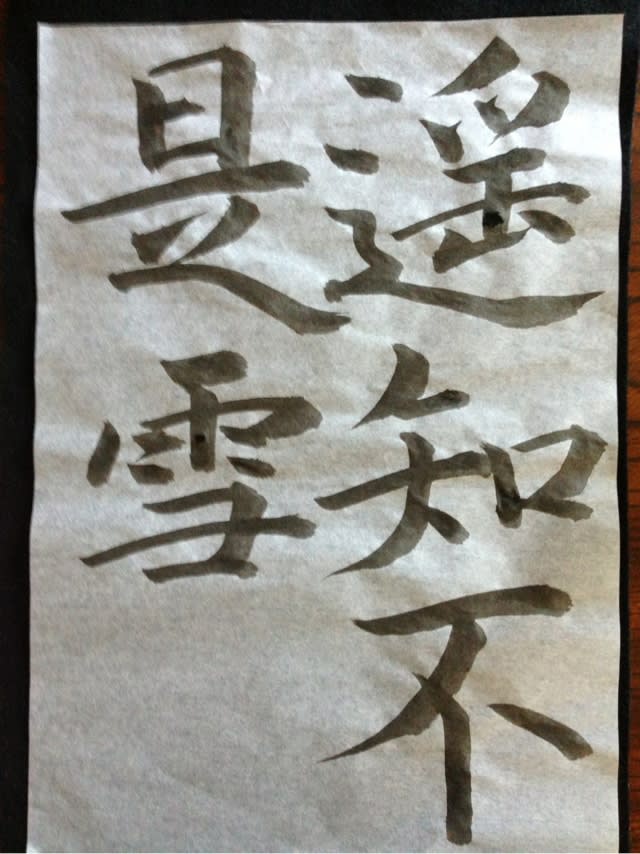 遥知不
是雪